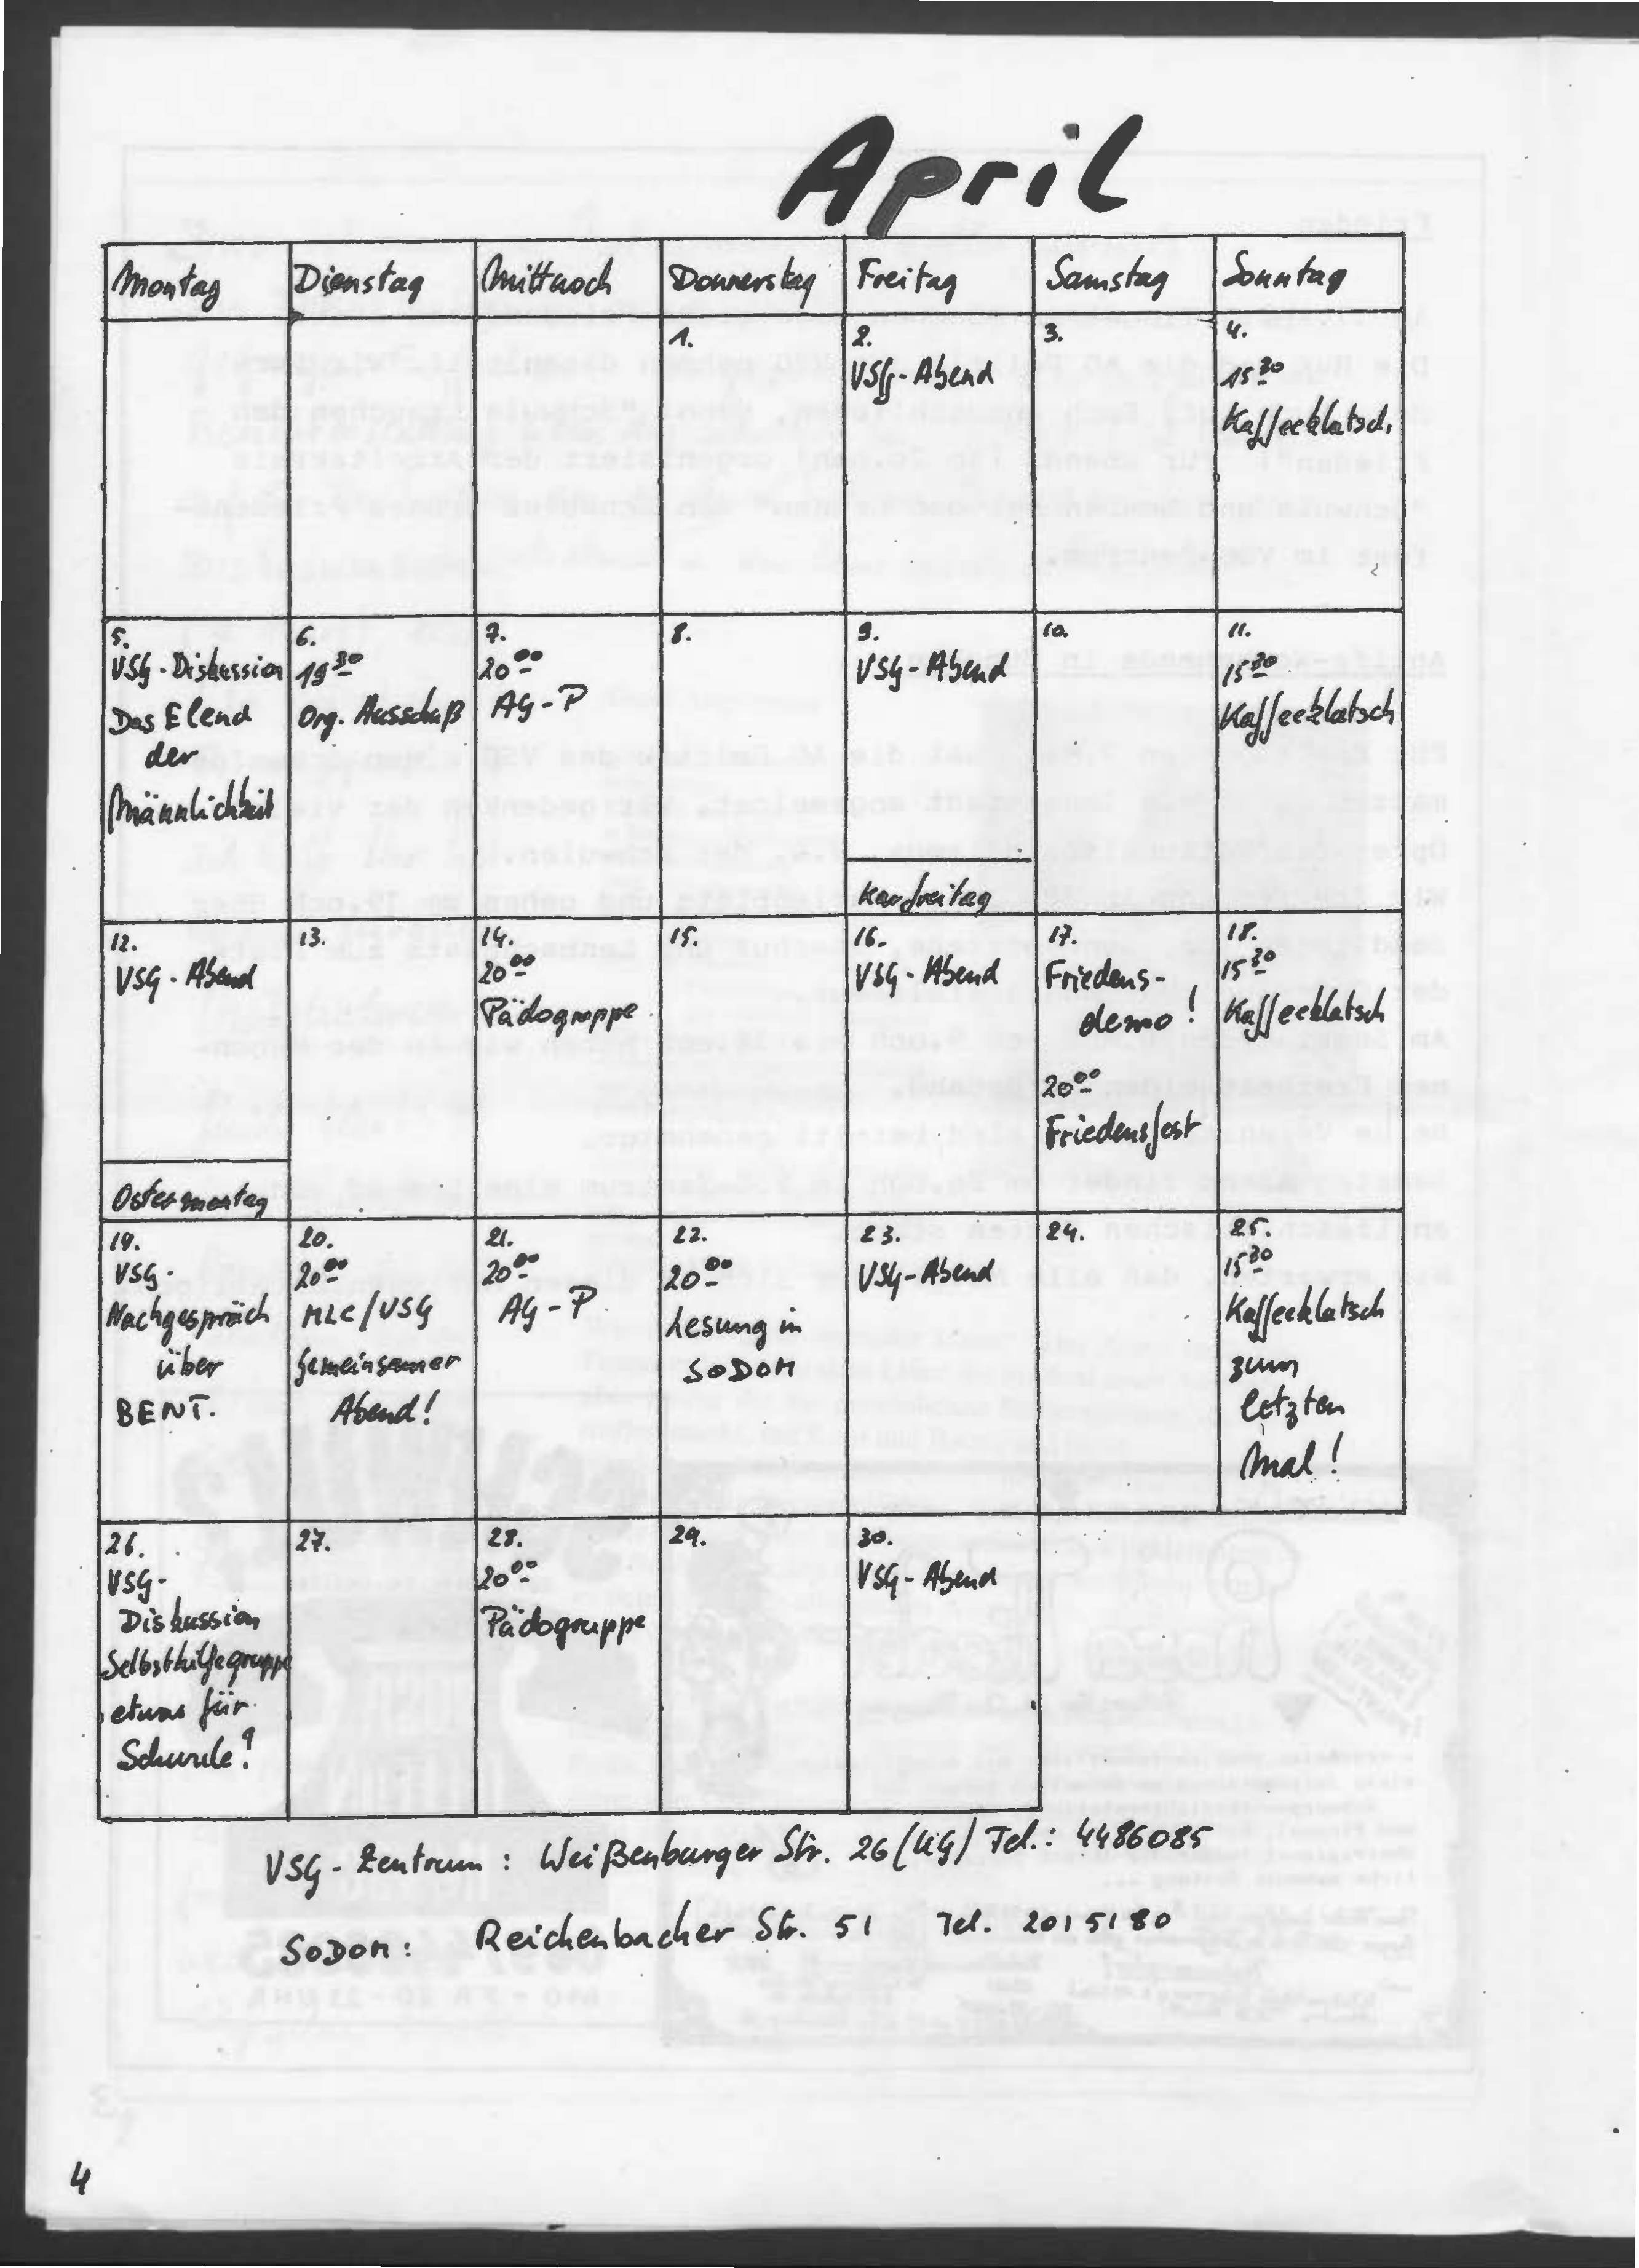 April
Montag Dienstag Mittwoch Donnerstag Freitag Samstag Sonntag
1.
2.
VSG-Abend
3.
4.
15 30
Kaffeeklatsch
5.
VSG-Diskussion
Das Elend
der
Männlichkeit
6.
19 30
Org. Ausschuß
7.
20 00
AG-P
8.
9.
VSG-Abend
Karfreitag
10.
11.
15 30
Kaffeeklatsch
12.
VSG-Abend
Ostermontag
13.
14.
20 00
Pädogruppe
15.
16.
VSG-Abend
17.
Friedens-
demo!
20 00
Friedensfest
18.
15 30
Kaffeeklatsch
19.
VSG-
Nachgespräch
über
BENT.
20.
20 00
MLC/VSG
Gemeinsamer
Abend!
21.
20 00
AG-P
22.
20 00
Lesung in
SODOM
23.
VSG-Abend
24.
25.
15 30
Kaffeeklatsch
zum
letzten
Mal!
26.
VSG-
Diskussion
Selbsthilfegruppe
etwas für
Schwule?
27.
28.
20 00
Pädogruppe
29.
30.
VSG-Abend
VSG-Zentrum: Weißenburger Str. 26 (UG) Tel.: 4486085
SODOM: Reichenbacher Str. 51 Tel. 2015180
4